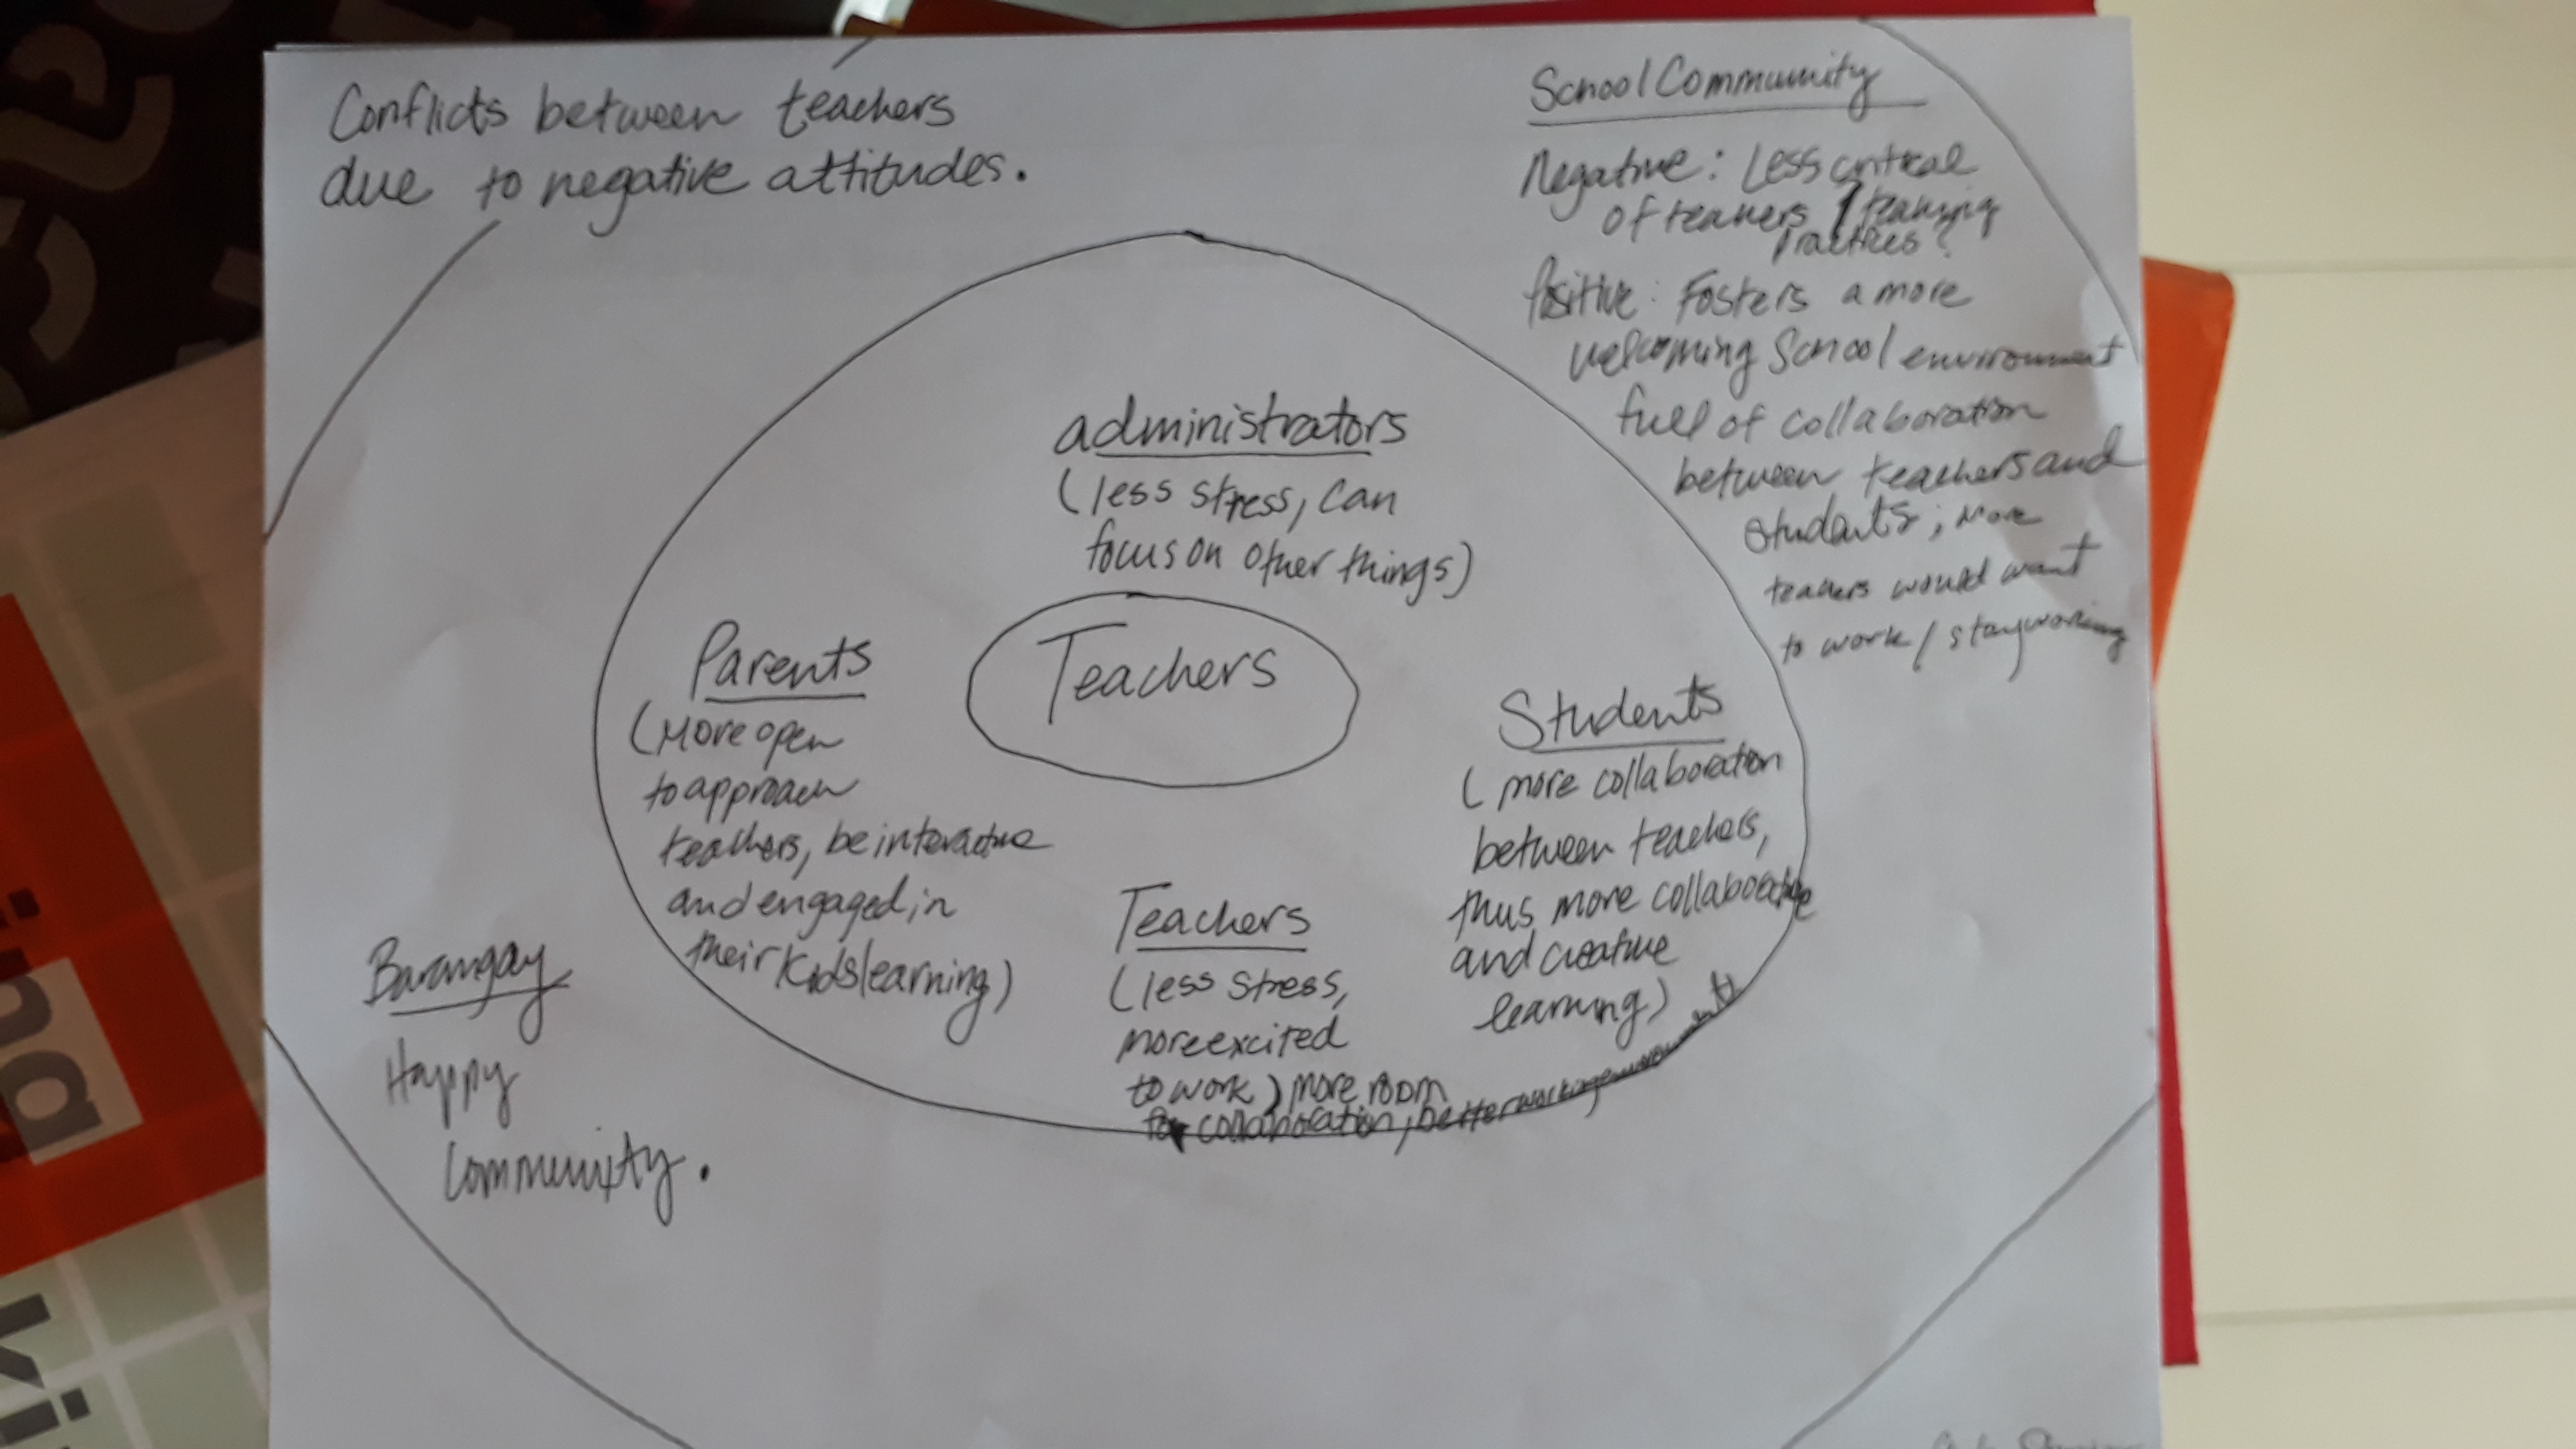 Conflicts between teachers
due to negative attitudes.
School Community
Negative: Less critical
of teachers / teaching
practices?
Positive: Fosters a more
welcoming School environment
full of collaboration
between teachers and
students; more
teachers would want
to work / stay working
administrators
(less stress, can
focus on other things)
Teachers
Parents
(More open
to approach
teachers, be interactive
and engaged in
their kids learning)
Students
(more collaboration
between teachers,
thus more collaborative
and creative
learning)
Teachers
(less stress,
more excited
to work) more room
for collaboration, better working
Barangay
Happy
Community.
ina
ki